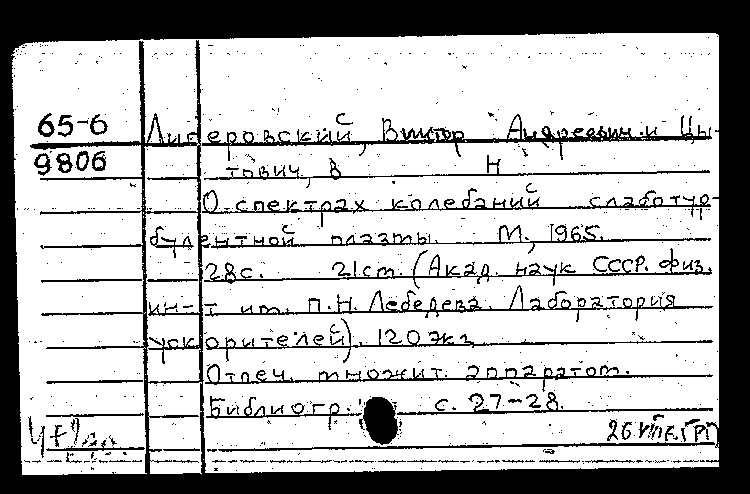 65-6 Липеровский, Виктор Андреевич и Цы-
9806 тович, В Н
О спектрах колебаний слаботур-
булентной плазмы. М., 1965.
28с. 21cm. (Акад. наук СССР. Физ.
ин-т им. П.Н. Лебедева. Лаборатория
ускорителей). 120 экз
Отпеч. множит. аппаратом.
Библиогр. с. 27-28.